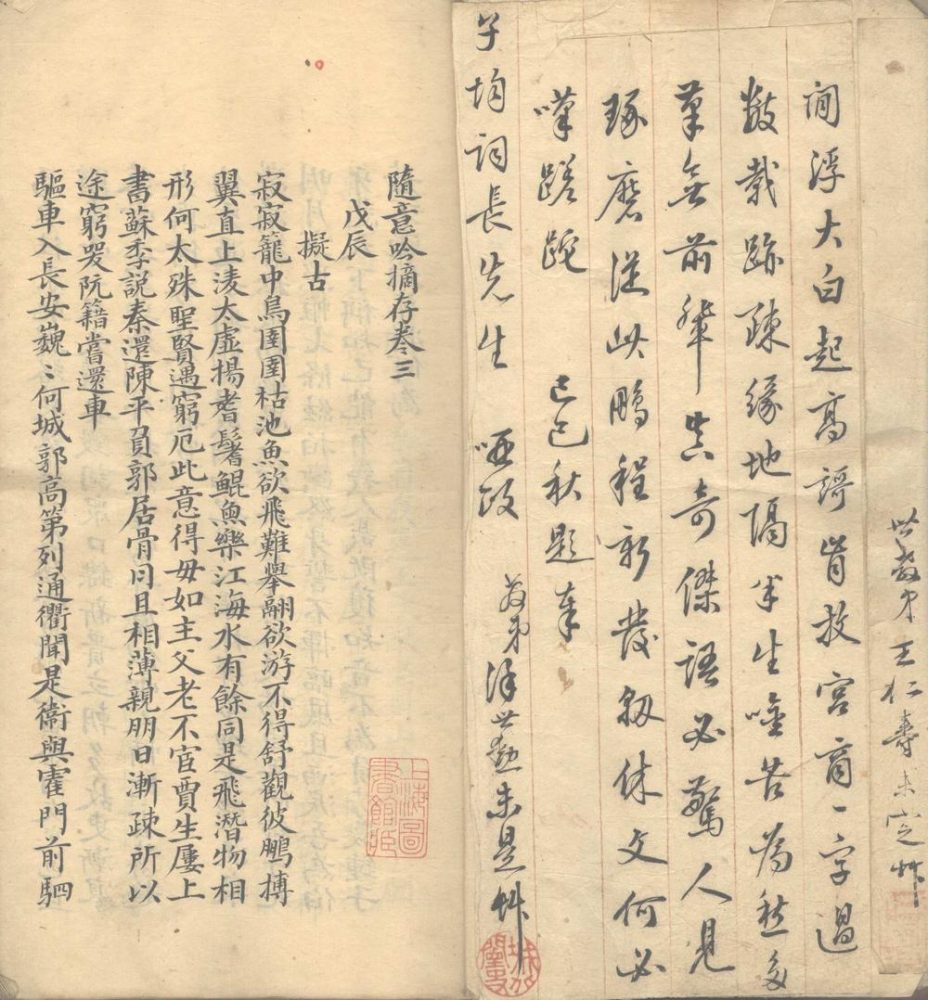 世教弟王仁壽未定艸
浮大白起高謌肯放宮商一字過
數載跡疎緣地隔半生吟苦為愁多
革無前輩真奇傑語必驚人見
琢磨從此鵬程新發軔休文何必
嘆蹉跎
己巳秋題奉
子均詞長先生 政
世勳未是艸
隨意吟摘存卷三
戊辰
擬古
寂寂籠中鳥圉圉枯池魚欲飛難舉翮欲游不得舒觀彼鵬摶
翼直上淩太虛揚耆鬐鯤魚樂江海水有餘同是飛潛物相
形何太殊聖賢遇窮厄此意得毋如主父老不宦賈生屢上
書蘇季説秦還陳平負郭居骨肉且相薄親朋日漸疎所以
途窮哭阮籍嘗還車
驅車入長安巍〻何城郭高第列通衢聞是衛與霍門前駟
上海圖書館藏